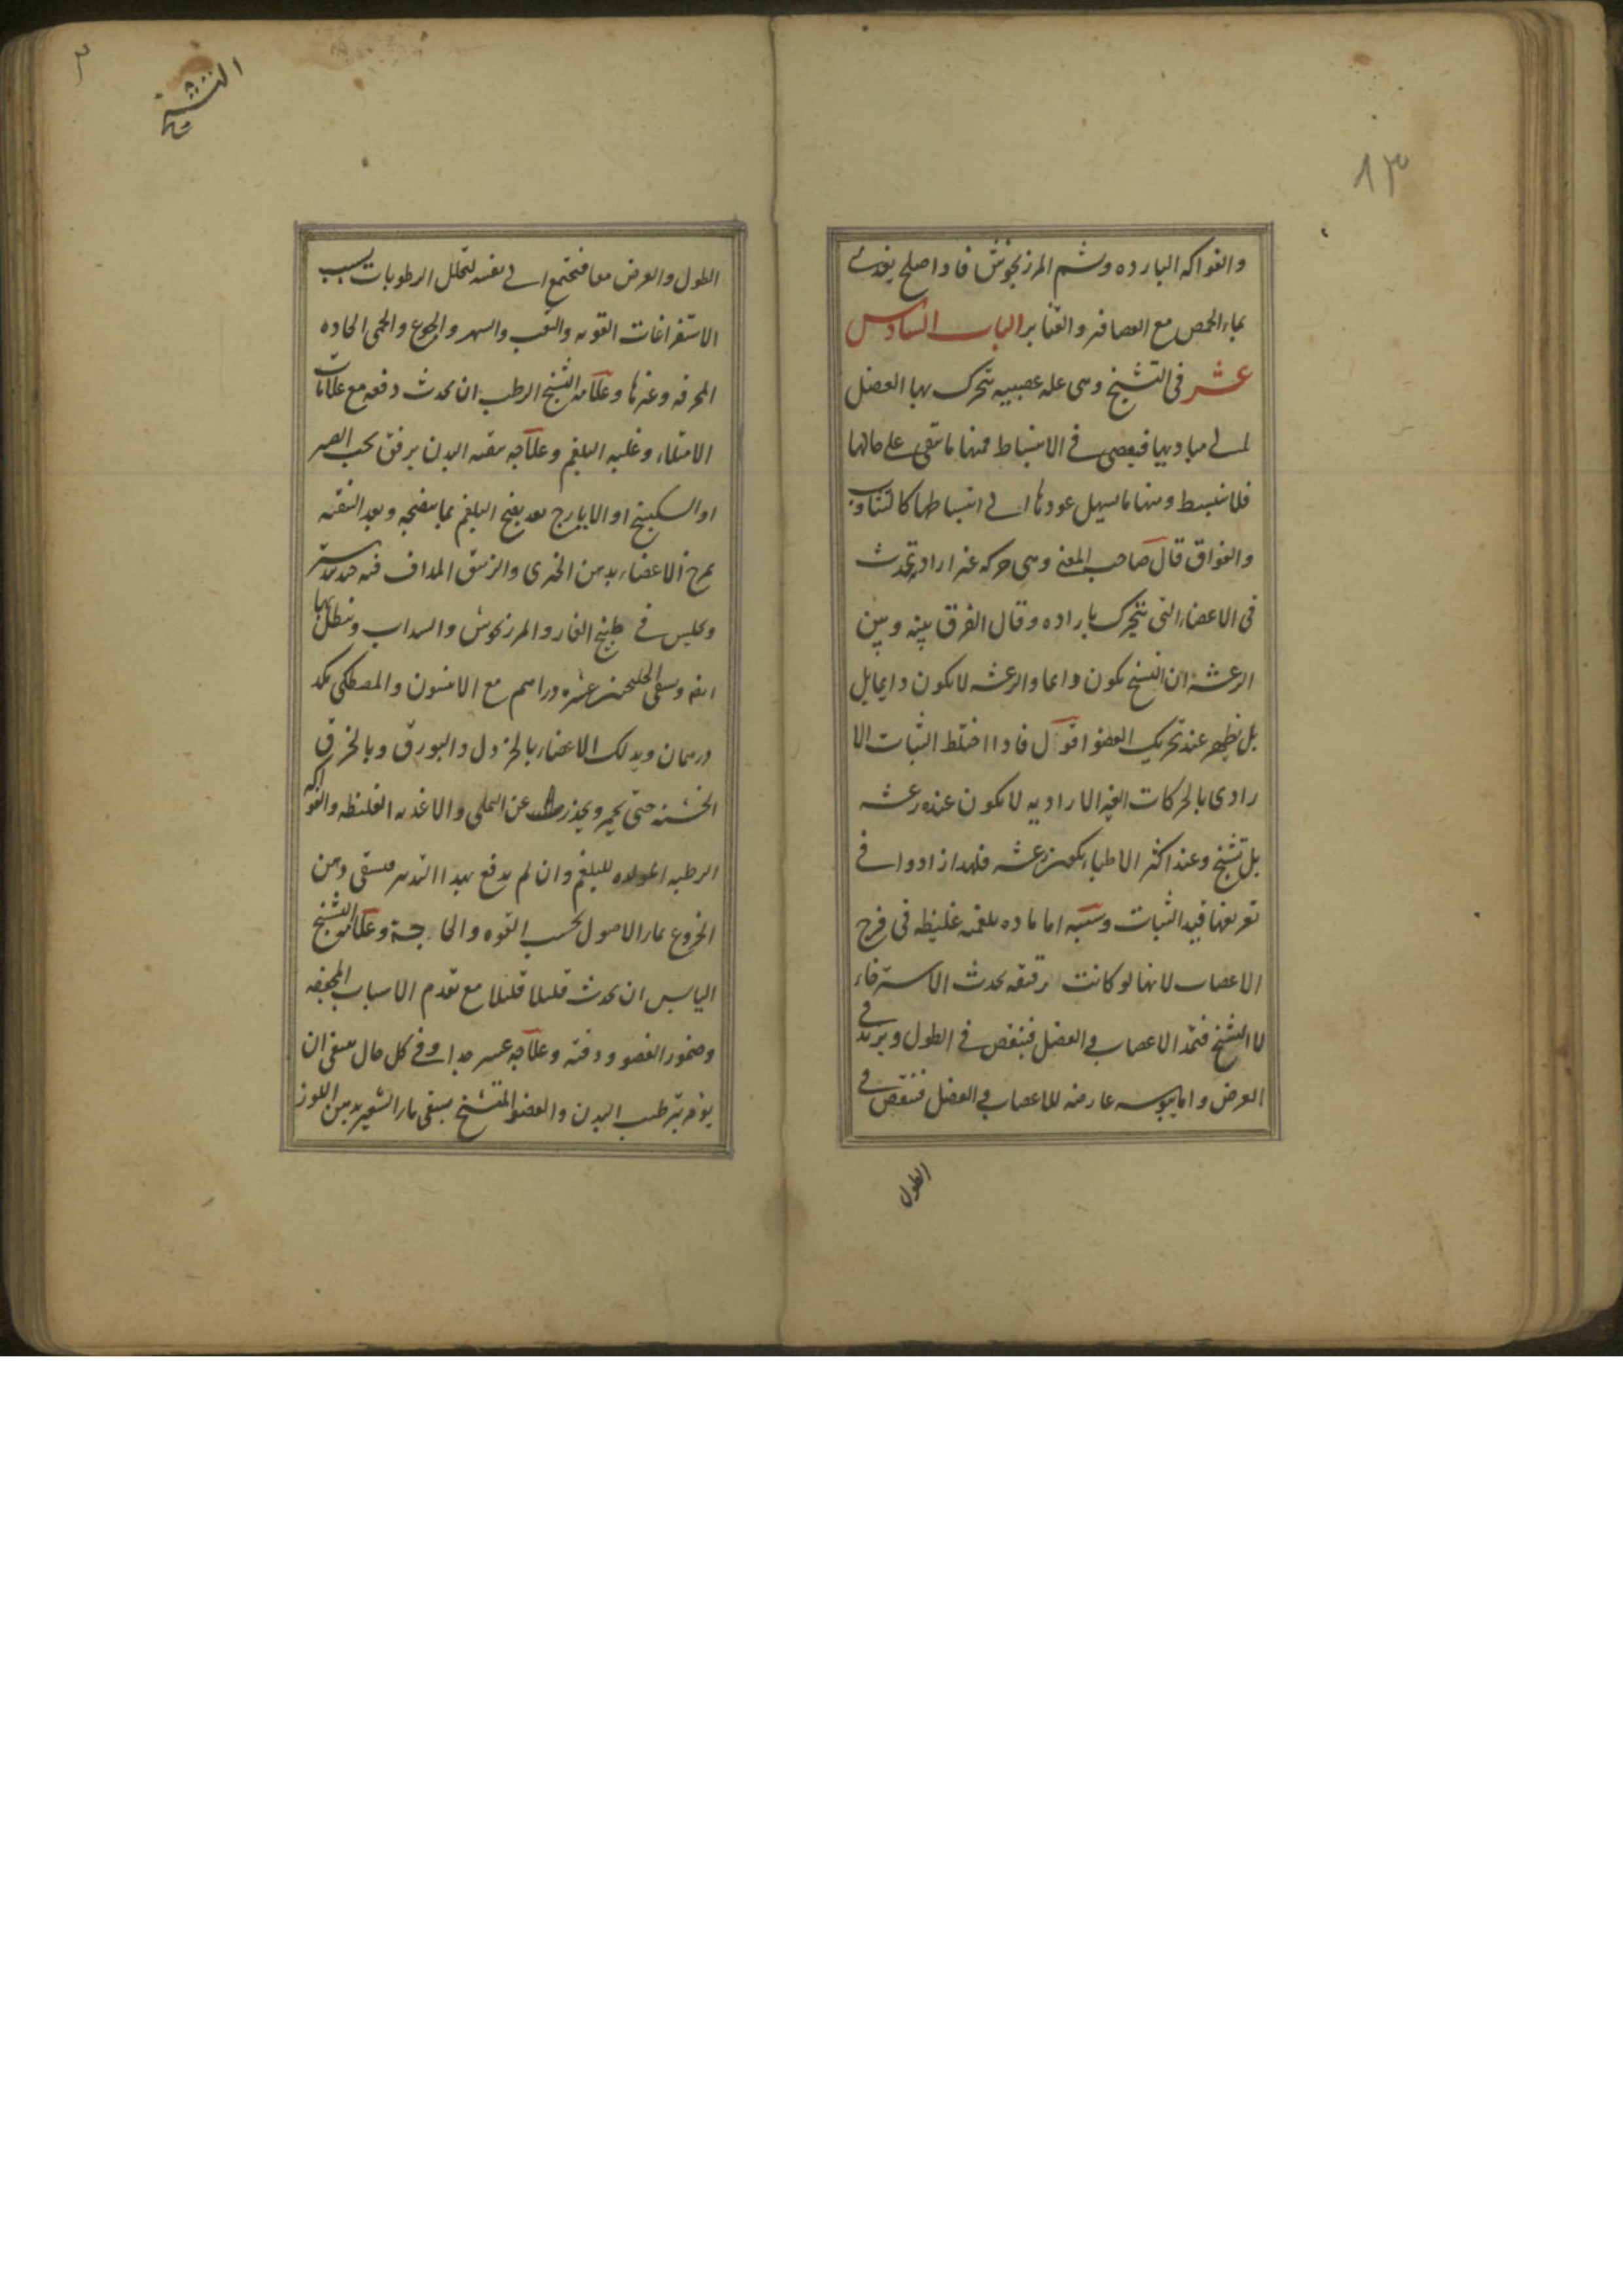 ١٣
والفواكه البارده وشم المرزنجوش فاذا صلح يغذى
بماء الحمص مع العصافير والقنابر الباب السادس
عشر فى التشنج وهى عله عصبيه تتحرك بها العضل
الى مباديها فيعصى فى الانبساط فمنها ما تبقى على حالها
فلا ينبسط ومنها ما يسهل عودها الى انبساطها كالتثاوب
والفواق قال صاحب المغنى وهى حركه غير ارادية تحدث
فى الاعضاء التى تتحرك باراده وقال الفرق بينه وبين
الرعشه ان التشنج يكون دائما والرعشه لا يكون دائما بل
بل يظهر عند تحريك العضو اقول فاذا اختلط الثبات الا
رادى بالحركات الغير الاراديه لا يكون عنده رعشه
بل تشنج وعند اكثر الاطباء يكون رعشه فلهذا زادوا فى
تعريفها قيد الثبات وسببه اما ماده بلغميه غليظه فى فرج
الاعصاب لانها لو كانت رقيقه يحدث الاسترخاء
لا التشنج فتمدد الاعصاب والعضل فينقص فى الطول ويزيد فى
العرض واما يبوسه عارضه للاعصاب والعضل فينقص فى
الطول
٣
التشنج
الطول والعرض معا فتجتمع الى نفسه لتحلل الرطوبات بسبب
الاستفراغات القويه والتعب والسهر والجوع والحمى الحاده
المحرقه وغيرها وعلامة التشنج الرطب ان يحدث دفعه مع علامات
الامتلاء وغلبه البلغم وعلاجه تنقيه البدن برفق بحب الصبر
او السكبينج او الايارج بعد نضج البلغم بما ينضجه وبعد التنقيه
يمرخ الاعضاء بدهن الخيرى والزنبق المداف فيه جندبيدستر
ويجلس فى طبيخ الغار والمرزنجوش والسداب وينطل بها
ايضا ويسقى الجلنجبين عشره دراهم مع الانيسون والمصطكى
درهمان ويدلك الاعضاء بالخردل والبورق وبالخرق
الخشنه حتى يحمر ويحذر عن التملى والاغذيه الغليظه والفواكه
الرطبه المولده للبلغم وان لم يدفع بهذا التدبير فيسقى دهن
الخروع بماء الاصول بحسب القوه والحاجة وعلامة التشنج
اليابس ان يحدث قليلا قليلا مع تقدم الاسباب المجففه
وضمور العضو ودقته وعلاجه عسر جدا وفى كل حال ينبغى ان
يؤمر بترطيب البدن والعضو المتشنج يسقى ماء الشعير بدهن اللوز